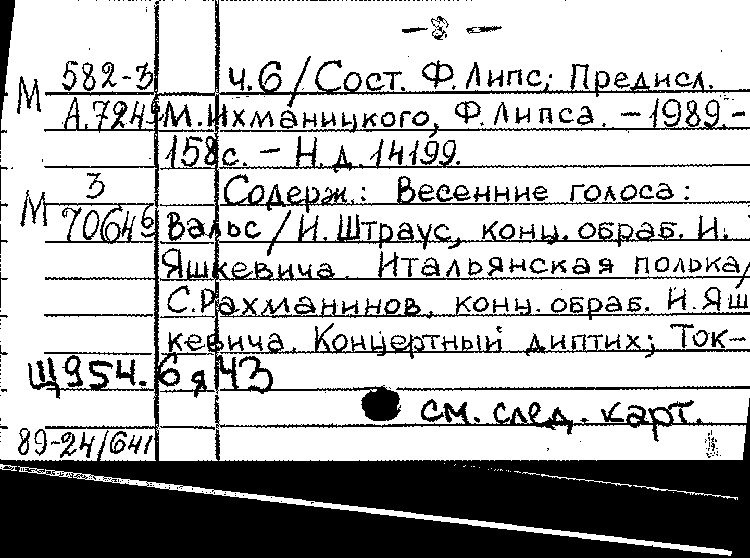 — 8 —
М 582-3 ч.6/Сост. Ф. Липс; Предисл.
А.7249 М. Ихманицкого, Ф. Липса. – 1989.–
158с. – Н.д. 14199.
М 3 Содерж.: Весенние голоса:
70649 Вальс/И. Штраус, конц. обраб. И.
Яшкевича. Итальянская полька/
С. Рахманинов, конц. обраб. И. Яш
кевича. Концертный диптих; Ток–
Щ954.6я43
см. след. карт.
89-24/641